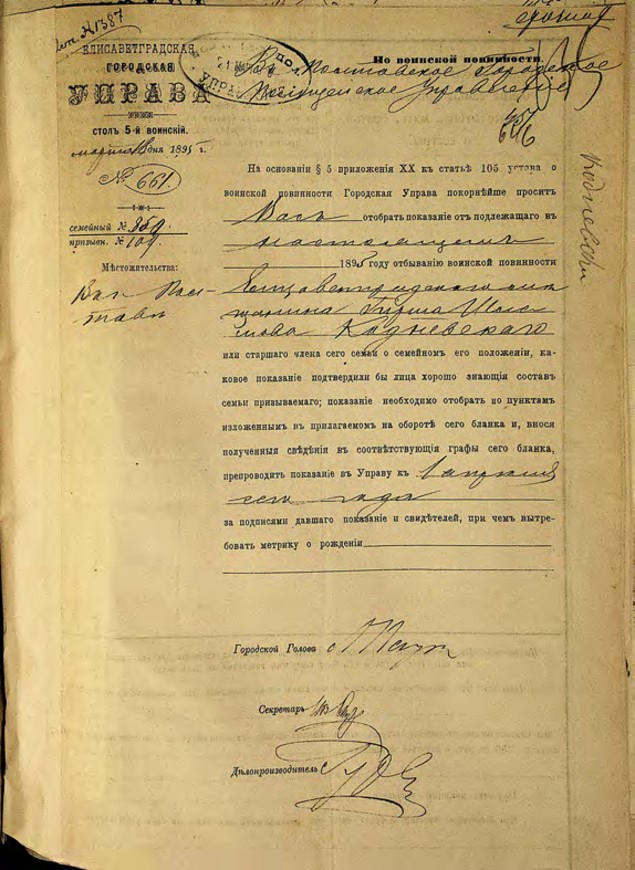 № 1387
ЕЛИСАВЕТГРАДСКАЯ
ГОРОДСКАЯ
УПРАВА
СТОЛЪ 5-й ВОИНСКІЙ.
марта 18 дня 1895 г.
№ 661.
СЕМЕЙНЫЙ № 859.
ПРИЗЫВН. № 109.
Мѣстожительства:
По воинской повинности.
Въ Полтавское Городское
Полицейское Управленіе
На основаніи § 5 приложенія XX къ статьѣ 105 устава о
воинской повинности Городская Управа покорнѣйше проситъ
Васъ отобрать показаніе отъ подлежащаго въ
настоящемъ
1895 году отбыванію воинской повинности
Елисаветградскаго мѣ
щанина Гирша Шле
мова Кадневскаго
или старшаго члена сего семьи о семейномъ его положеніи, ка-
ковое показаніе подтвердили бы лица хорошо знающія составъ
семьи призываемаго; показаніе необходимо отобрать по пунктамъ
изложеннымъ въ прилагаемомъ на оборотѣ сего бланка и, внося
полученныя свѣдѣнія въ соотвѣтствующія графы сего бланка,
препроводить показаніе въ Управу къ 1 апрѣля
сего года
за подписями давшаго показаніе и свидѣтелей, при чемъ вытре-
бовать метрику о рожденіи
Городской Голова
Секретарь
Дѣлопроизводитель